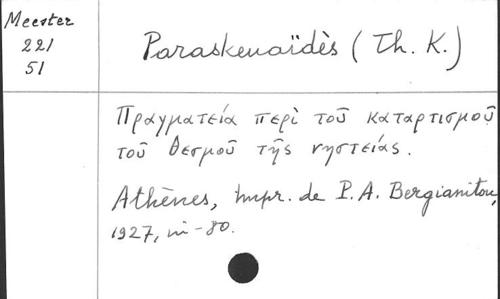 Meester
221
51
Paraskevaïdès (Th. K.)
Πραγματεία περὶ τοῦ καταρτισμοῦ
τοῦ θεσμοῦ τῆς νηστείας.
Athènes, impr. de P. A. Bergianitou,
1927, in-80.